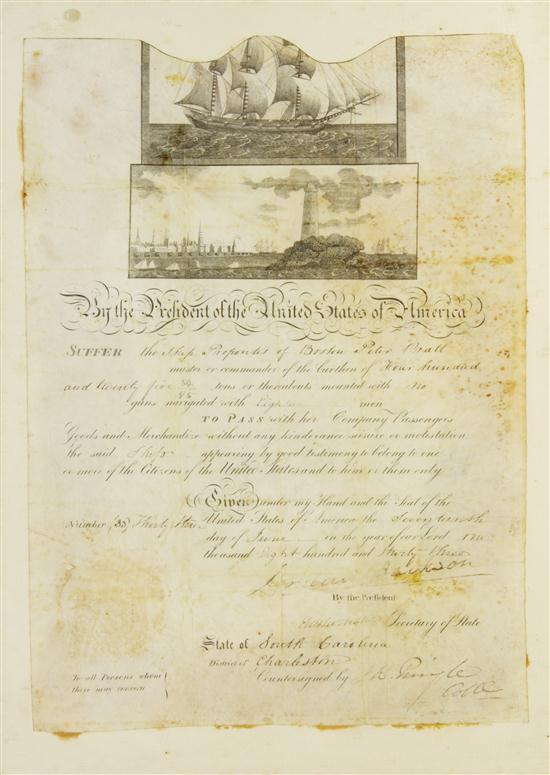 By the President of the United States of America
SUFFER the Ship Propontis of Boston Peter Pratt
master or commander of the burthen of Four hundred
and twenty five 34/95 tons or thereabouts mounted with No
guns navigated with men
TO PASS with her Company Passengers
Goods and Merchandize without any hinderance seisure or molestation
the said Ship appearing by good testimony to belong to one
or more of the Citizens of the United States and to him or them only
Given under my Hand and the Seal of the
Number (33) Thirty three United States of America the Seventeenth
day of June in the year of our Lord One
thousand Eight hundred and thirty three
Andrew Jackson
By the President
Secretary of State
State of South Carolina
District of Charleston
To all Persons whom Countersigned by J R Pringle
these may concern Coll